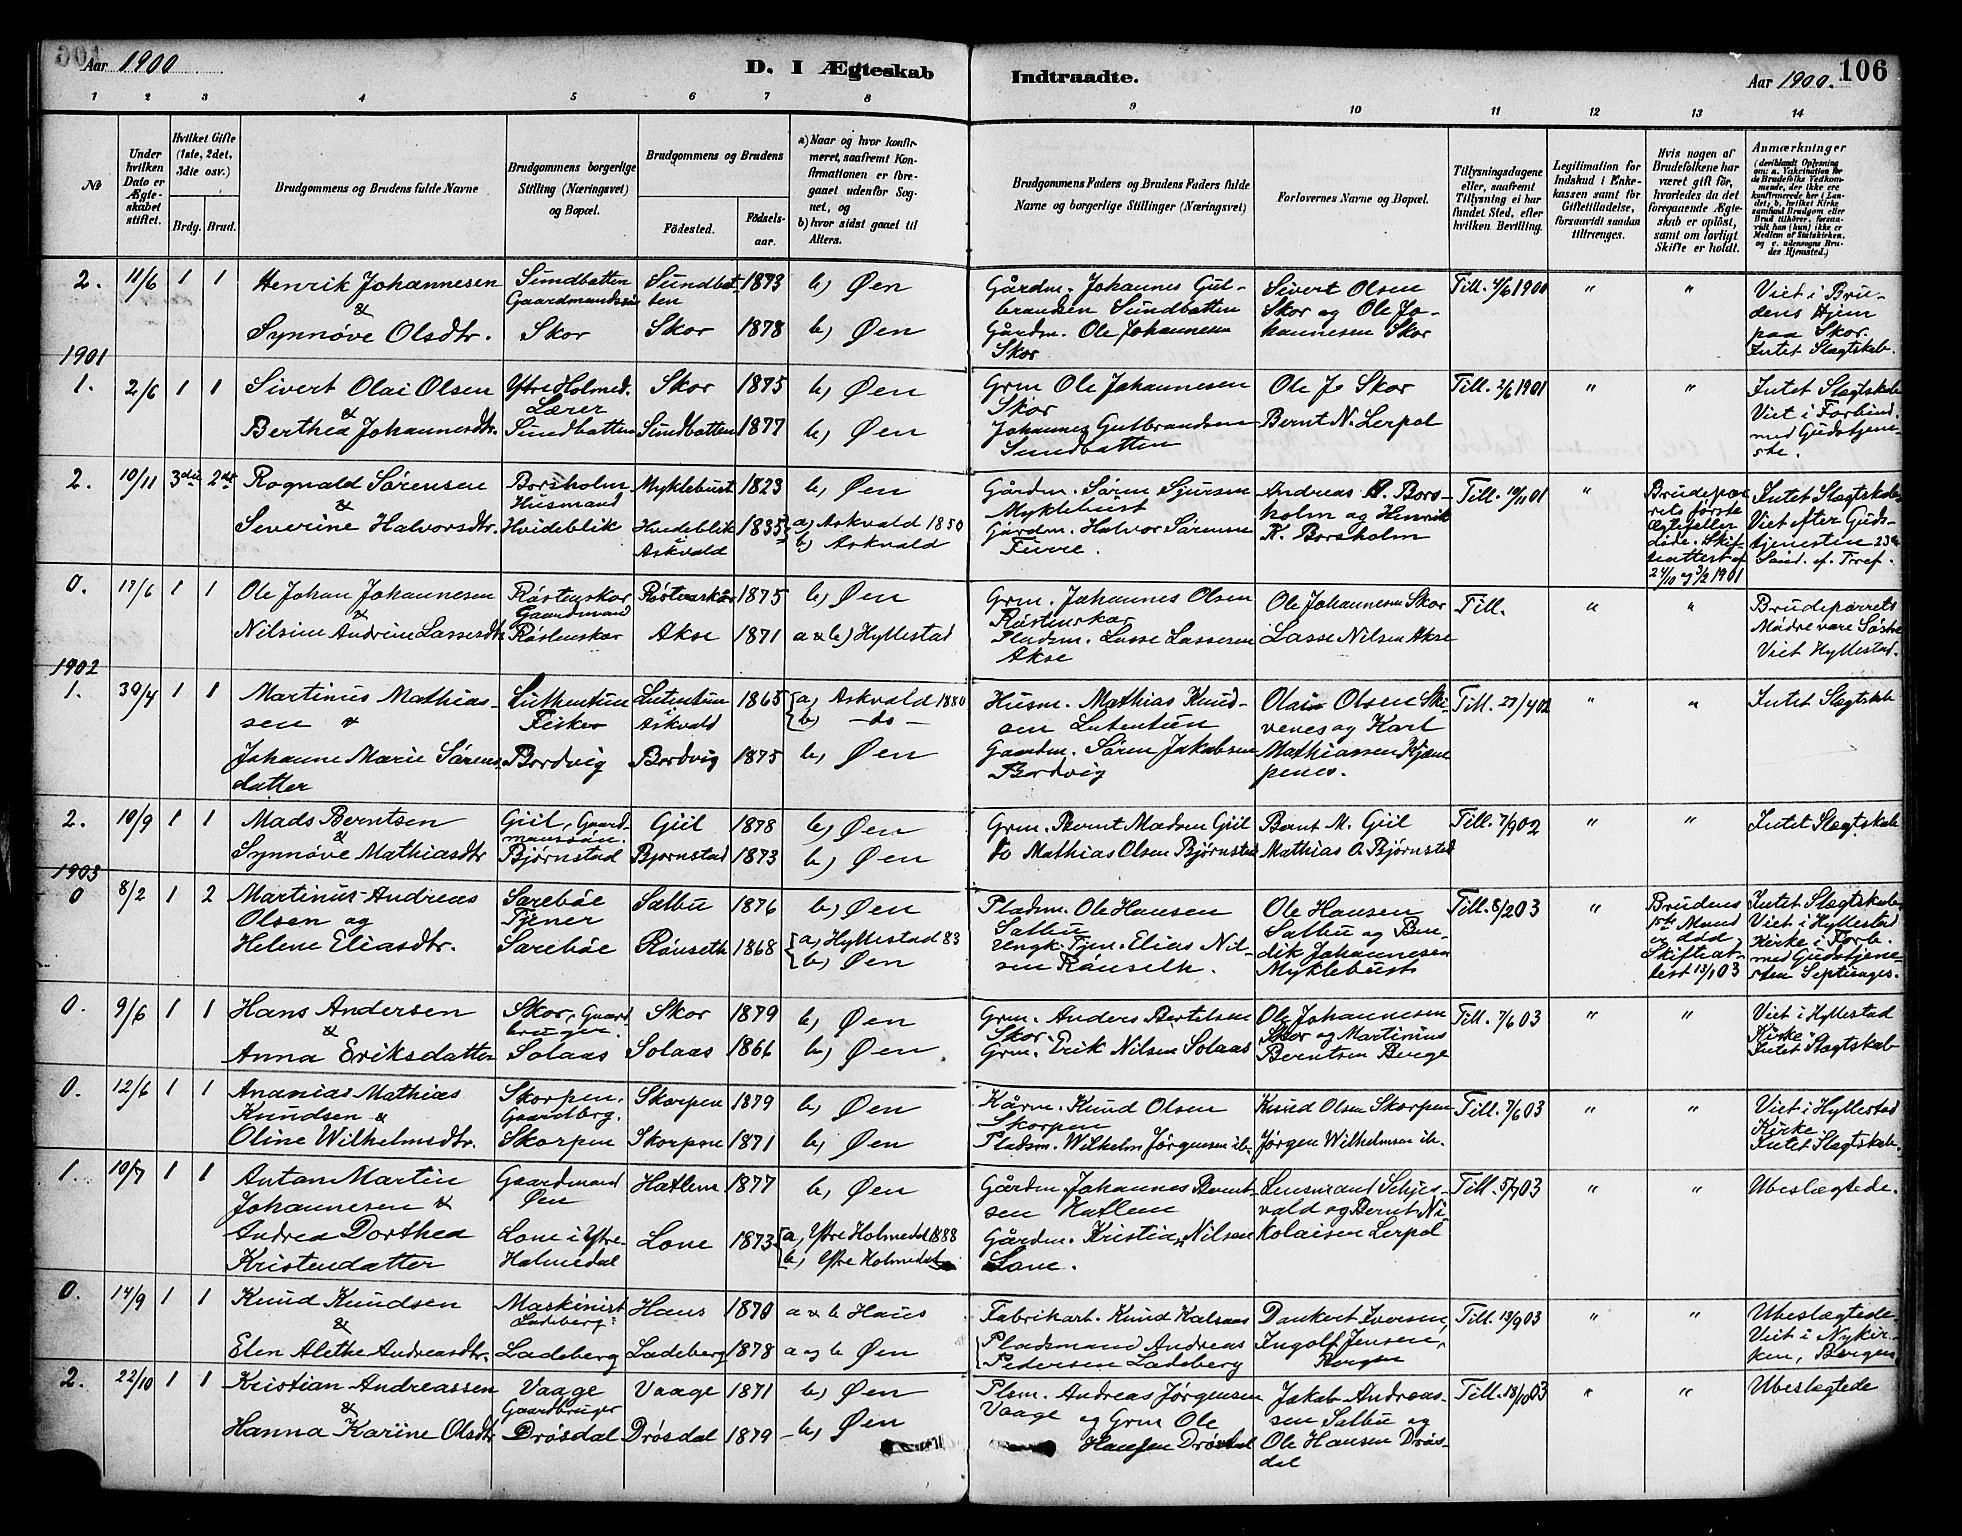 Aar 1900
D. I Ægteskab Indtraadte.
Aar 1900.
106
1 2 3 4 5 6 7 8 9 10 11 12 13 14
No
Under hvilken Dato er Ægteskabet stiftet.
Hvilket Gifte (1ste, 2det, 3die osv.)
Brdg. Brud.
Brudgommens og Brudens fulde Navne
Brudgommens borgerlige Stilling (Næringsvei) og Bopæl.
Brudgommens og Brudens
Fødested.
Fødselsaar.
a) Naar og hvor konfirmeret, saafremt Konfirmationen er foregaaet udenfor Sognet, og
b) hvor sidst gaaet til Alters.
Brudgommens Faders og Brudens Faders fulde Navne og borgerlige Stillinger (Næringsvei)
Forlovernes Navne og Bopæl.
Tillysningsdagene eller, saafremt Tillysning ei har fundet Sted, efter hvilken Bevilling.
Legitimation for Indskud i Enkekassen samt for Giftetilladelse, forsaavidt saadan tiltrænges.
Hvis nogen af Brudefolkene har været gift før, hvorledes da det foregaaende Ægteskab er opløst, samt om lovligt Skifte er holdt.
Anmærkninger
(deriblandt Oplysning om: a. Vakcination for de Brudefolks Vedkommende, der ikke ere konfirmerede her i Landet, b, hvilket Kirkesamfund Brudgom eller Brud tilhører, forsaavidt han (hun) ikke er Medlem af Statskirken, og c. udensogns Brudes Hjemsted.)
2. 11/6 1 1 Henrik Johannesen Sundbotten Gaardmandssøn Sundbotten 1873 b) Øen
&
Synnøve Olsdtr. Skor Skor 1878 b) Øen
Gårdm. Johannes Gulbrandsen Sundbatten
Gårdm. Ole Johannesen Skor
Sivert Olsen Skor og Ole Johannesen Skor
Till. 4/6 1900 " "
Viet i Brudens Hjem paa Skor. Intet Slægtskab.
1901
1. 2/6 1 1 Sivert Olai Olsen Ytre Holmed. Lærer Skor 1875 b) Øen
&
Berthea Johannesdtr. Sundbatten Sundbotten 1877 b) Øen
Grm Ole Johannesen Skor
Johannes Gulbrandsen Sundbatten
Ole Jo Skor
Bernt N. Lerpol
Till. 2/6 1901 " "
Intet Slægtskab Viet i Forbind. med Gudstjeneste.
2. 10/11 3die 2det Rognald Sørensen Borsholm Husmand Myklebust 1823 b) Øen
&
Severine Halvorsdtr. Hvideblik Hvideblik Askvald 1835 a) Askvald 1850 b) Askvald
Gårdm. Søren Sjursen Myklebust
Gårdm. Halvor Sørensen
Andreas Borsholm og Henrik K. Borsholm
Till. 10/11 01 "
Brudeparrets første Ægtefeller døde. Skifteattest af 24/10 og 3/2 1901
Intet Slægtskab Viet efter Gudstjenesten 23de Sønd. ef. Tref.
0. 17/6 1 1 Ole Johan Johannesen Røstenskar Gaardmand Røstenskar 1875 b) Øen
&
Nilsine Andrine Lassesdtr Røstenskar Akse 1871 a & b) Hyllestad
Grm. Johannes Olsen Røstenskar
Pladsm. Lasse Lassesen Akse
Ole Johannesen Skor
Lasse Nilsen Akse
Till. " "
Brudeparrets Mødre vare Søstre Viet Hyllestad.
1902
1. 30/4 1 1 Martinus Mathiassen & Luthentun Fisker Lutentun Askvald 1865 a) Askvald 1880 b) -do-
Johanne Marie Sørensdatter Bordvig Bordvig 1875 b) Øen
Husm. Mathias Knudsen Lutentun
Gaardm. Søren Jakobsen Bordvig
Olai Olsen Skivenes og Karl Mathiassen
Till. 27/4 02 " "
Intet Slægtskab
2. 10/9 1 1 Mads Berntsen Giil, Gaardmanssøn. Giil 1878 b) Øen
&
Synnøve Mathiasdtr Bjørnstad Bjørnstad 1873 b) Øen
Grm. Bernt Madsen Giil
do Mathias Olsen Bjørnstad
Bernt M. Giil
Mathias O. Bjørnstad
Till. 7/9 02 " "
Intet Slægtskab
1903
0 8/2 1 2 Martinus Andreas Olsen og Sørebøe Tjener Salbu 1876 b) Øen
Helene Eliasdtr. Sørebøe Rønseth 1868 a) Hyllestad 83 b) Øen
Pladsm. Ole Hansen Salbu
Elias Nilsen Rønseth.
Ole Hansen Salbu og Bendik Johannesen Myklebust
Till. 8/2 03 "
Brudens 1ste Mand er død, Skifteattest 13/1 03
Intet Slægtskab Viet i Hyllestad Kirke i Forb. med Gudstjenesten Septuages.
0. 9/6 1 1 Hans Andersen Skor, Gaardbruger Skor 1879 b) Øen
&
Anna Eriksdatter Solaas Solaas 1866 b) Øen
Grm. Anders Bertelsen Skor.
Grm. Erik Nilsen Solaas
Ole Johannesen Skor og Martinus Berntsen Berge
Till. 7/6 03 " "
Viet i Hyllestad Kirke Intet Slægtskab
0. 12/6 1 1 Ananias Mathias Knudsen & Skorpen. Gaardbrg. Skorpen 1879 b) Øen
Oline Wilhelmsdtr. Skorpen Skorpen 1871 b) Øen
Kårm. Knud Olsen Skorpen
Pladsm. Wilhelm Jørgensen ib.
Knud Olsen Skorpen
Jørgen Wilhelmsen ib.
Till. 7/6 03 " "
Viet i Hyllestad Kirke. Intet Slægtskab.
1. 10/7 1 1 Antan Martin Johannesen & Gaardmand Øen Hatlem 1877 b) Øen
Andrea Dorthea Kristendatter Lone i Ytre Holmedal Lone 1873 a) Ytre Holmedal 1888 b) Ytre Holmedal
Gårdm. Johannes Berntsen Hatlem
Gårdm. Kristian Nilsen Lone.
Lensmand Schjesvald og Bernt Nikolaisen Lerpol
Till. 5/7 03 " "
Ubeslægtede.
0. 14/9 1 1 Knud Knudsen Maskinist Ladeberg Haus 1870 a & b Haus
&
Elen Alethe Andreasdtr. Ladeberg Ladeberg 1878 a og b Øen
Fabrikarb. Knud Kalsaas
Pladsmand Andreas Pedersen Ladeberg
Dankert Iversen,
Ingolf Jensen, Bergen
Till. 13/9 03 " "
Ubeslægtede. Viet i Nykirken, Bergen
2. 22/10 1 1 Kristian Andreassen Vaage Gaardbruger Vaage 1871 b) Øen
&
Hanna Karine Olsdtr Drøsdal Drøsdal 1879 b) Øen
Plsm. Andreas Jørgensen Vaage og Grm Ole Hansen Drøsdal
Jakob Andreassen Salbu og Ole Hansen Drøsdal
Till. 18/10 03 " "
Ubeslægtede